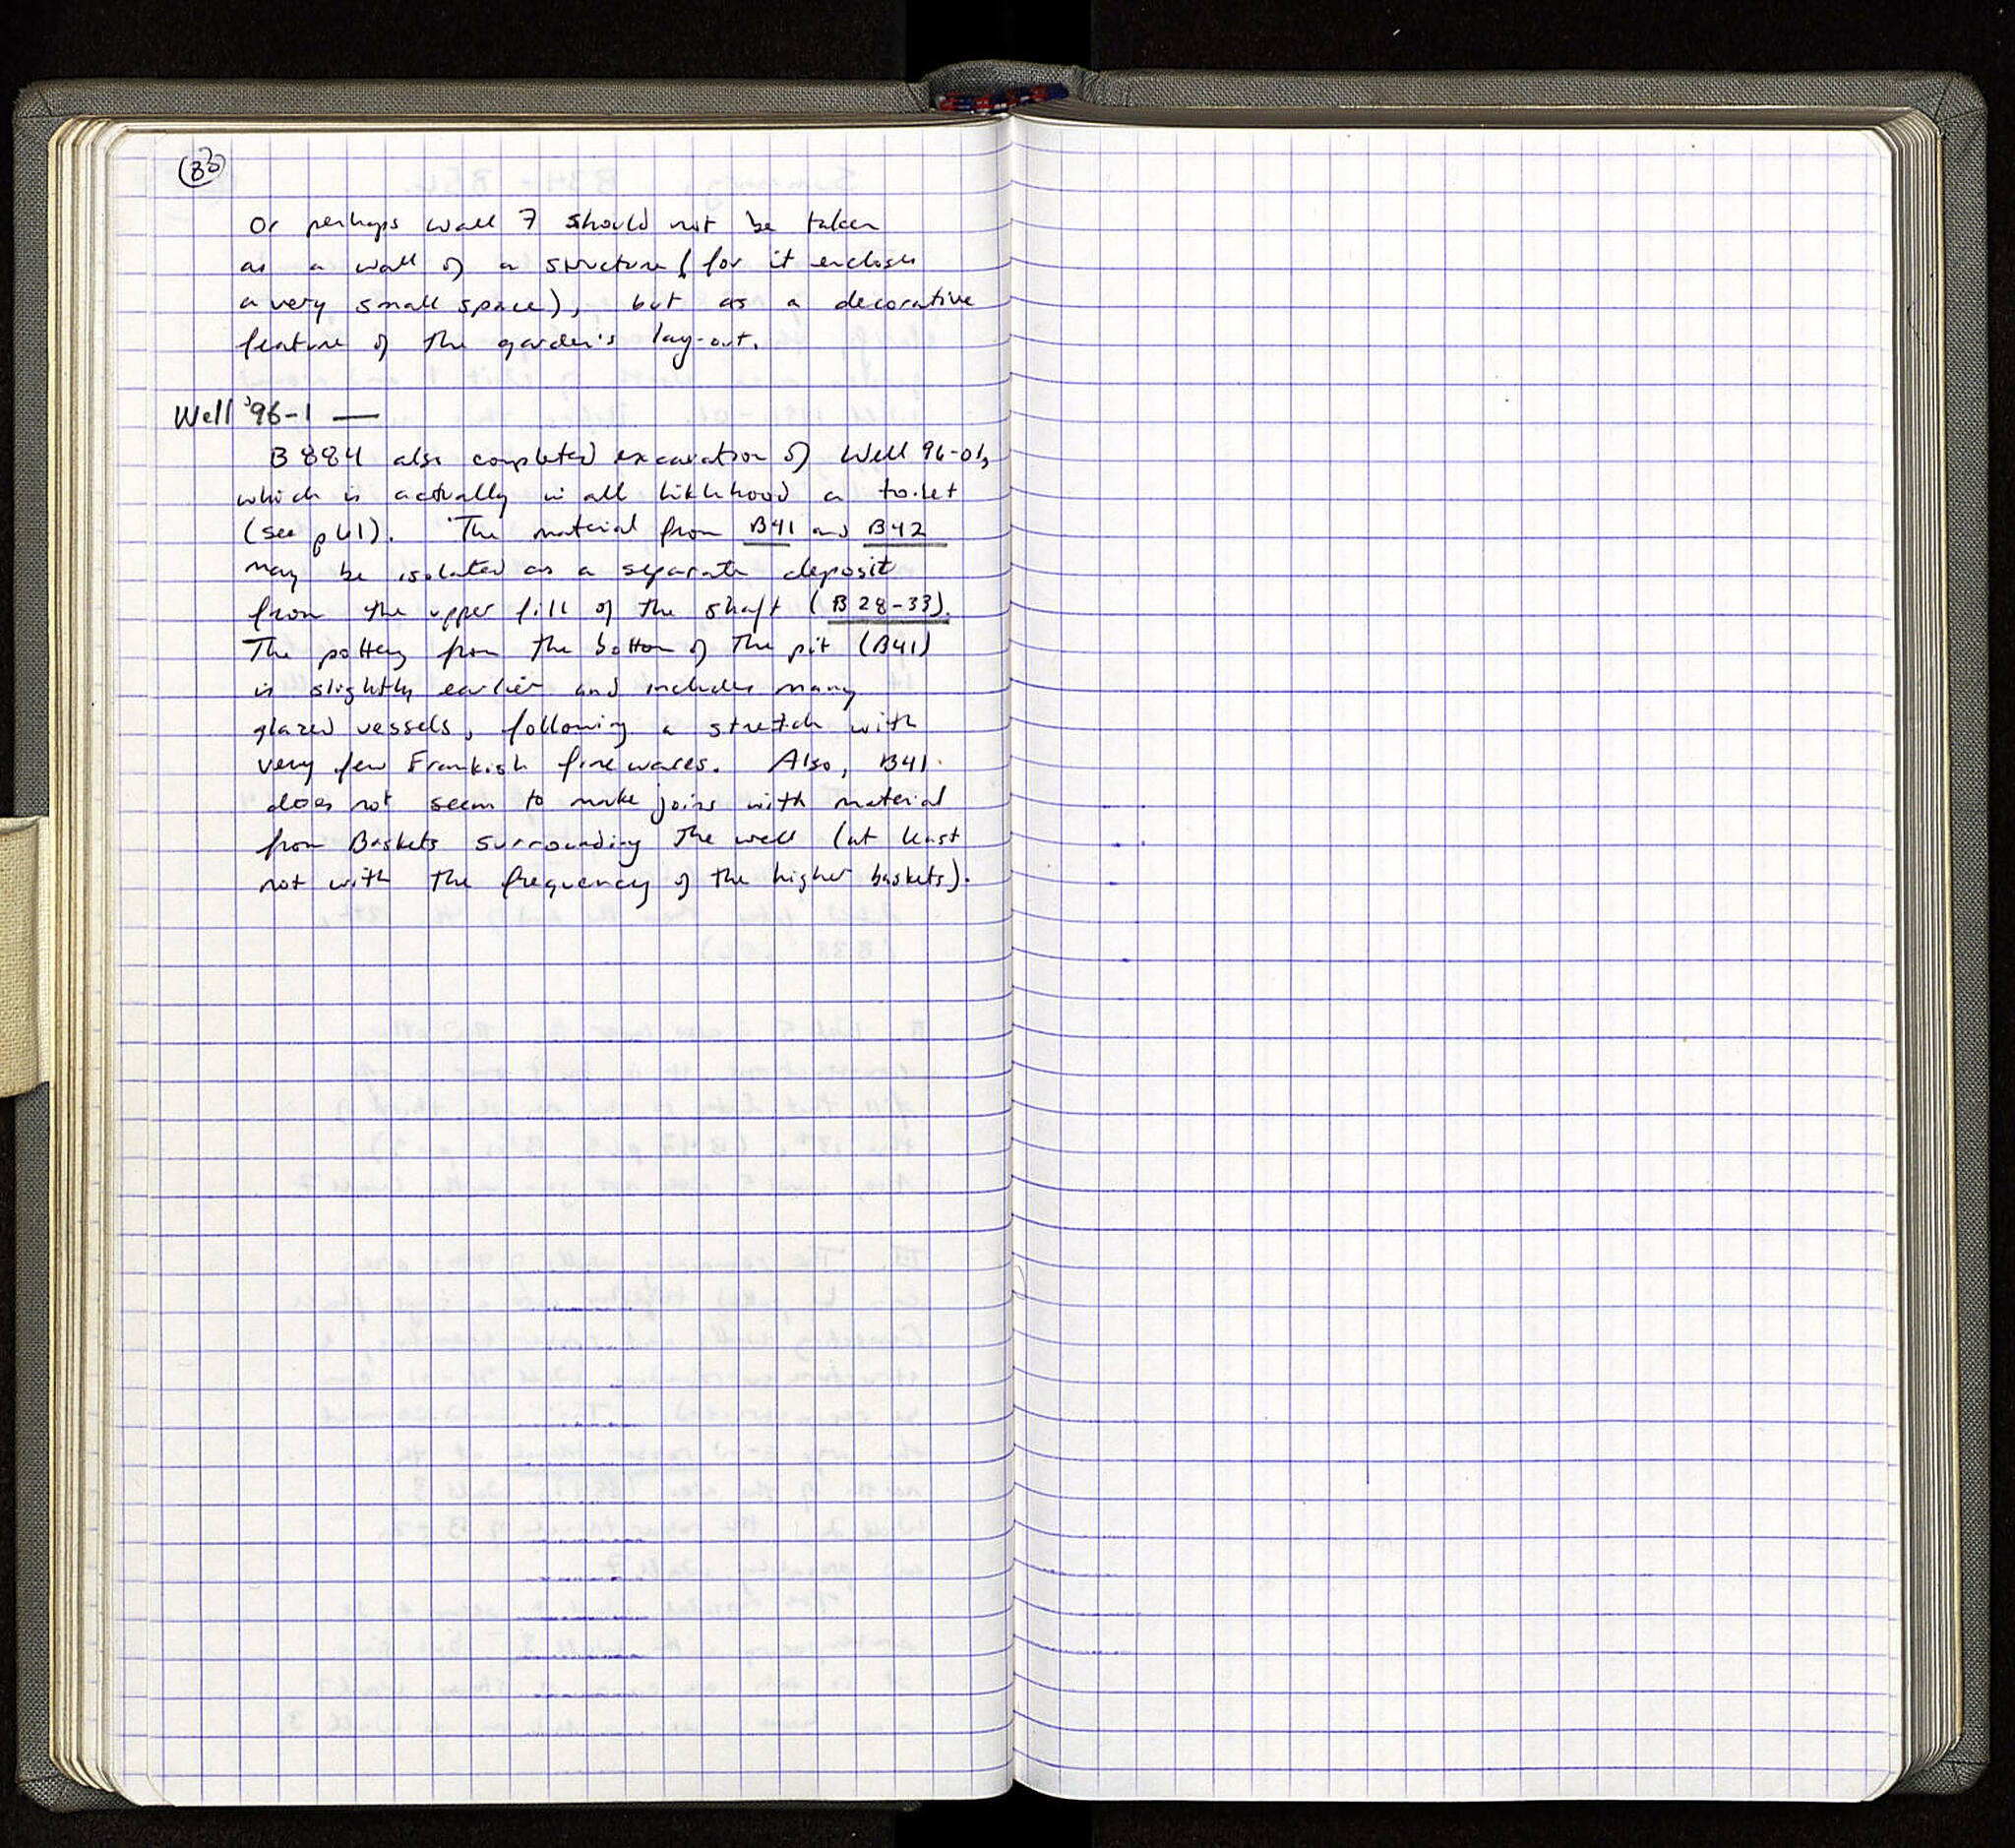 83
Or perhaps wall 7 should not be taken
as a wall of a structure (for it encloses
a very small space), but as a decorative
feature of the garden's lay-out.
Well '96-1 —
B 884 also completed excavation of Well 96-01,
which is actually in all liklihood a toilet
(see p 61). The material from B41 and B42
may be isolated as a separate deposit
from the upper fill of the shaft (B 28-33).
The pottery from the bottom of the pit (B41)
is slightly earlier and includes many
glazed vessels, following a stretch with
very few Frankish fine wares. Also, B41
does not seem to make joins with material
from Baskets surrounding the well (at least
not with the frequency of the higher baskets).